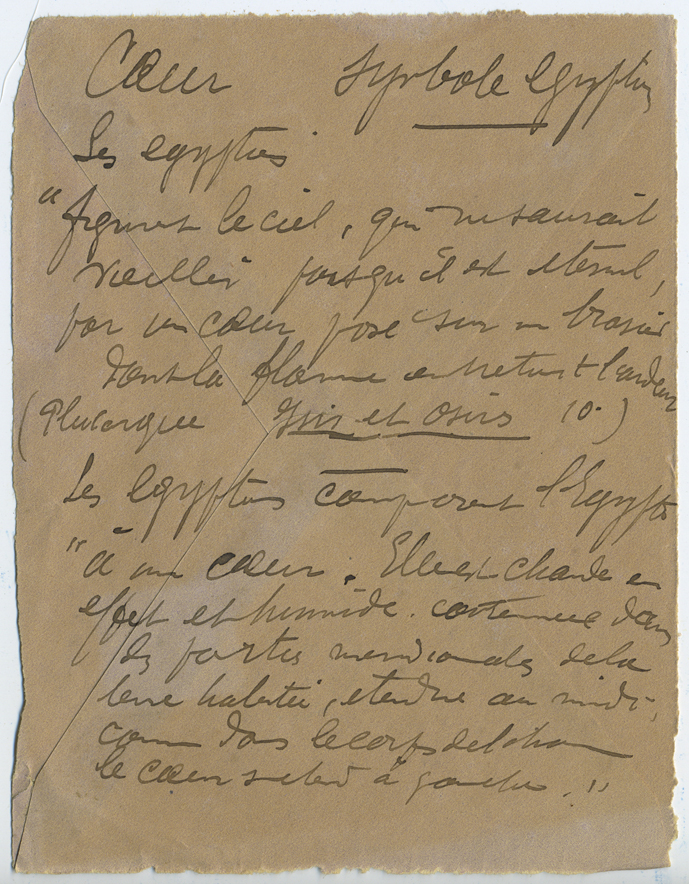 Cœur Symbole egyptien
Les egyptiens
"figurent le ciel, qui ne saurait
vieillir puisqu'il est eternel,
par un cœur posé sur un brasier
dont la flamme entretient l'ardeur
(Plutarque Isis et Osiris 10.)
Les egyptiens comparent l'Egypte
"à un cœur. Elle est chaude en
effet et humide. contenue dans
les parties meridionales de la
terre habitée, etendue au midi,
comme dans le corps de l'homme
le cœur s'etend à gauche."